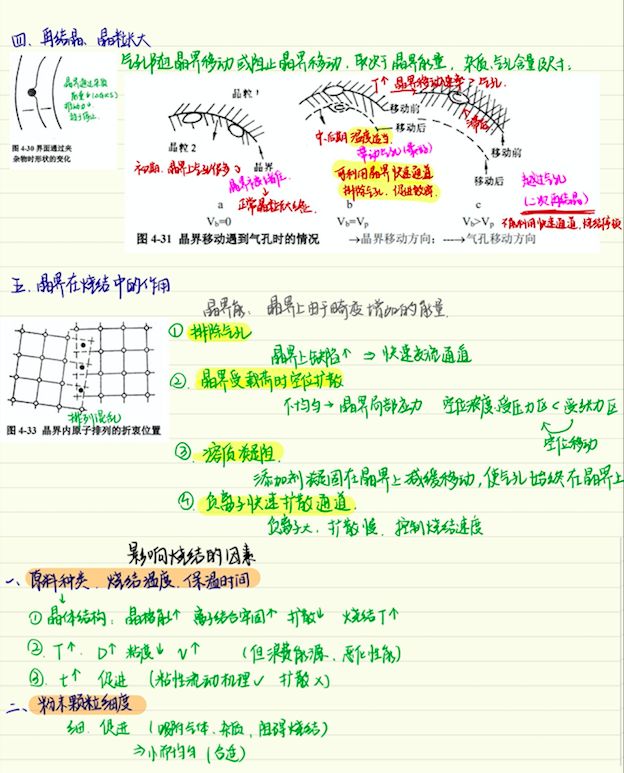 四、再结晶、晶粒长大
气孔随晶界移动或阻止晶界移动，取决于晶界能量，杂质、气孔含量尺寸。
晶界通过杂质
能量
图 4-30 界面通过夹
杂物时形状的变化
T↑ 晶界移动速率>气孔.
晶粒 1
晶粒 2
晶界
移动前
移动后
移动前
移动后
初期、晶界上气孔
正常晶粒长大停止.
中、后期 温度适当
带动气孔
可利用晶界快速通道
排除气孔，促进致密.
越过气孔
(二次再结晶)
不能利用快速通道，
a
b
c
Vb=0
Vb=Vp
Vb>Vp
图 4-31 晶界移动遇到气孔时的情况 →晶界移动方向；---→气孔移动方向
五、晶界在烧结中的作用
晶界能、晶界上由于畸变增加的能量.
① 排除气孔
晶界上缺陷↑ ⇒ 快速交流通道
② 晶界受载荷时空位扩散
不均匀→晶界局部应力 空位浓度、受压力区<受张力区
空位移动
排列混乱
图 4-33 晶界内原子排列的折衷位置
③ 溶质凝阻
添加剂凝固在晶界上减缓移动，使气孔始终在晶界上
④ 负离子快速扩散通道.
负离子大，扩散慢，控制烧结速度
影响烧结的因素
一、原料种类、烧结温度、保温时间
① 晶体结构：晶格能↑ 离子结合牢固↑ 扩散↓ 烧结T↑
② T↑ D↑ 粘度↓ v↑ (但浪费能源、恶化性能)
③ t↑ 促进 (粘性流动机理✓ 扩散×)
二、粉末颗粒细度
细、促进 (吸附气体、杂质，阻碍烧结)
⇒小而均匀 (合适)